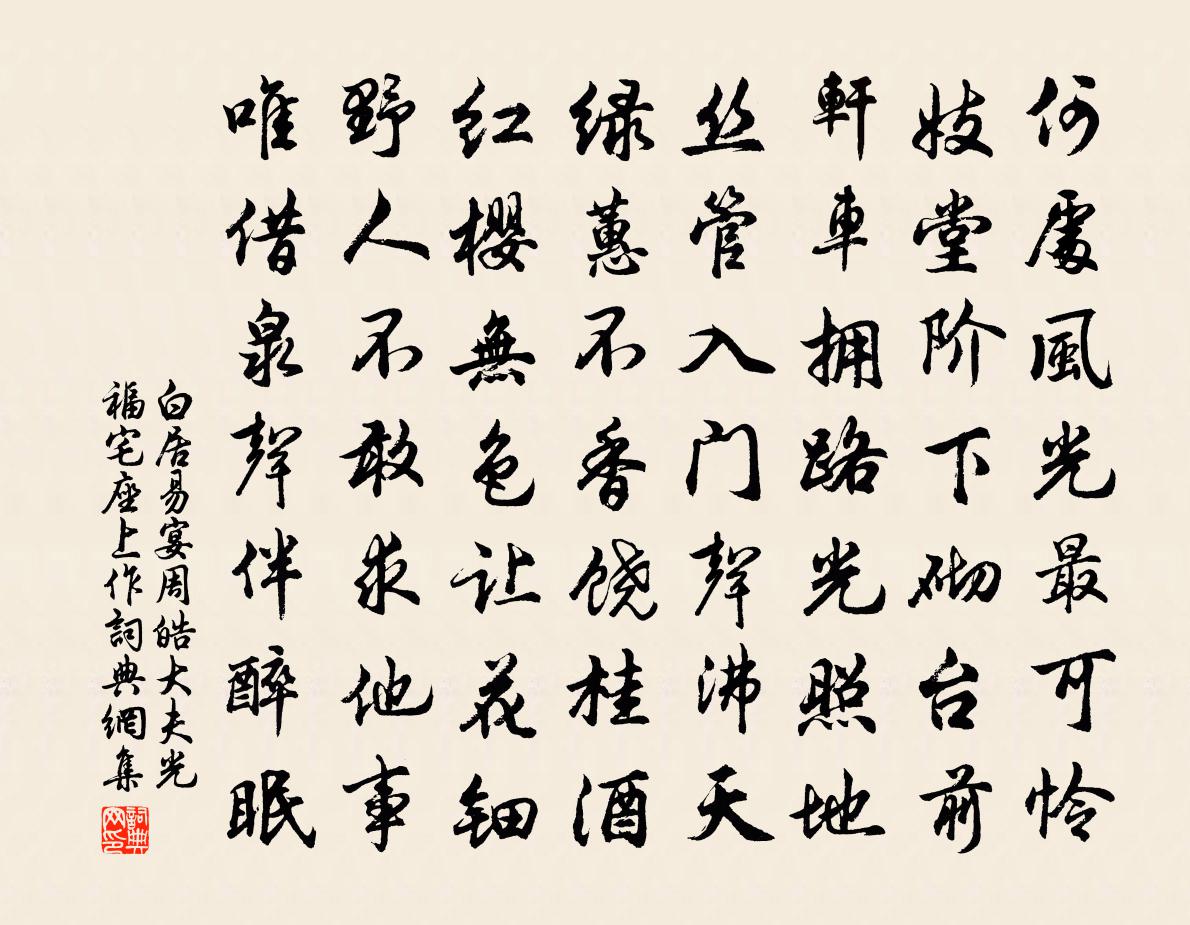 何處風光最可怜
妓堂阶下砌台前
軒車拥路光照地
丝管入门聲沸天
绿蕙不香饶桂酒
红樱無色让花钿
野人不敢求他事
唯借泉聲伴醉眠
白居易宴周皓大夫光
福宅座上作詞典網集
詞典网印